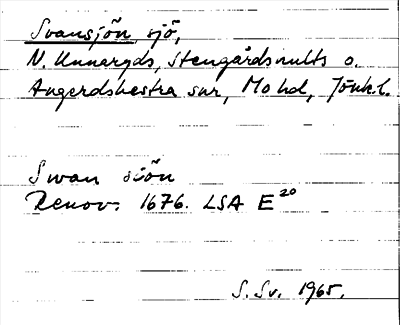 Svansjön sjö,
N. Unnaryds, Stengårdshults o.
Angerdshestra snr, Mo hd, Jönk. l.
Swan siön
Renov. 1676. LSA E 20
S. Sv. 1965.